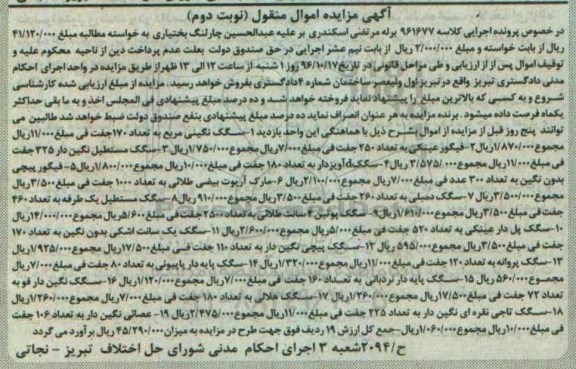 آگهی مزایده اموال منقول (نوبت دوم)
در خصوص پرونده اجرایی کلاسه ۹۶۱۶۷۷ برله مرتضی اسکندری بر علیه عبدالحسین چارلنگ بختیاری به خواسته مطالبه مبلغ ۴۱/۱۲۰/۰۰۰
ریال از بابت خواسته و مبلغ ۲/۰۰۰/۰۰۰ ریال از بابت نیم عشر اجرایی در حق صندوق دولت بعلت عدم پرداخت دین از ناحیه محکوم علیه و
توقیف اموال پس از ارزیابی و طی مراحل قانونی در تاریخ ۹۶/۱۰/۱۷ روز ۱ شنبه از ساعت ۱۲ الی ۱۳ ظهر از طریق مزایده در واحد اجرای احکام
مدنی دادگستری تبریز واقع در تبریز اول ولیعصر ساختمان شماره ۴ دادگستری بفروش خواهد رسید. مزایده از مبلغ ارزیابی شده کارشناسی
شروع و به کسی که بالاترین مبلغ را پیشنهاد نماید فروخته خواهد شد و ده درصد مبلغ پیشنهادی فی المجلس اخذ و به ما بقی حداکثر
یکماه فرصت داده میشود. برنده مزایده به هر عنوان انصراف نماید ده درصد مبلغ پیشنهادی بنفع صندوق دولت ضبط خواهد شد طالبین می
توانند پنج روز قبل از مزایده از اموال بشرح ذیل با هماهنگی این واحد بازدید ۱-سگک نگینی مربع به تعداد ۱۷۰ جفت فی مبلغ ۱۱/۰۰۰ ریال
مجموع ۱/۸۷۰/۰۰۰ ریال ۲-فیگور عینکی به تعداد ۲۵۰ جفت فی مبلغ ۷/۰۰۰ ریال مجموع ۱/۷۵۰/۰۰۰ ریال ۳-سگک مستطیل نگین دار ۳۲۵ جفت
فی مبلغ ۱۱/۰۰۰ ریال مجموع ۳/۵۷۵/۰۰۰ ریال ۴-سگک آویزدار به تعداد ۱۸۰ جفت فی مبلغ ۱۰/۰۰۰ ریال مجموع ۱/۸۰۰/۰۰۰ ریال ۵-فیگور پیچی
بدون نگین به تعداد ۳۰۰ عدد فی مبلغ ۷/۰۰۰ ریال مجموع ۲/۱۰۰/۰۰۰ ریال ۶-مارک آریوت بیضی طلائی به تعداد ۱۰۰۰ جفت فی مبلغ ۳/۵۰۰ ریال
مجموع ۳/۵۰۰/۰۰۰ ریال ۷-سگک دمبلی به تعداد ۲۶۰ جفت فی مبلغ ۳/۵۰۰ ریال مجموع ۹۱۰/۰۰۰ ریال ۸-سگک مستطیل یک طرفه به تعداد ۴۶۰
جفت فی مبلغ ۳/۵۰۰ ریال مجموع ۱/۶۱۰/۰۰۰ ریال ۹-سگک پوئین ۴ سانت طلائی به تعداد ۲۵۰۰ جفت فی مبلغ ۵/۶۰۰ ریال مجموع ۱۴/۰۰۰/۰۰۰ ریال
۱۰-سگک پل دار عینکی به تعداد ۵۲۰ جفت فی مبلغ ۵/۰۰۰ ریال مجموع ۲/۶۰۰/۰۰۰ ریال ۱۱-سگک یک سانت اشکی بدون نگین به تعداد ۱۷۰
جفت فی مبلغ ۳/۵۰۰ ریال مجموع ۵۹۵/۰۰۰ ریال ۱۲-سگک پیچی نگین دار به تعداد ۱۱۰ جفت فی مبلغ ۱۷/۵۰۰ ریال مجموع ۱/۹۲۵/۰۰۰ ریال
۱۳-سگک پروانه به تعداد ۱۲۰ جفت فی مبلغ ۱۱/۰۰۰ ریال مجموع ۱/۳۲۰/۰۰۰ ریال ۱۴-سگک پایه دار پاپیونی به تعداد ۸۰ جفت فی مبلغ ۷/۰۰۰ ریال
مجموع ۵۶۰/۰۰۰ ریال ۱۵-سگک پایه دار نردبانی به تعداد ۱۶۰ جفت فی مبلغ ۷/۰۰۰ ریال مجموع ۱/۱۲۰/۰۰۰ ریال ۱۶-سگک نگین دار قو به
تعداد ۷۲ جفت فی مبلغ ۱۷/۵۰۰ ریال مجموع ۱/۲۶۰/۰۰۰ ریال ۱۷-سگک هلالی به تعداد ۱۸۰ جفت فی مبلغ ۷/۰۰۰ ریال مجموع ۱/۲۶۰/۰۰۰ ریال
۱۸-سگک تاجی نقره ای نگین دار به تعداد ۲۲۵ جفت فی مبلغ ۱۱/۰۰۰ ریال مجموع ۲/۴۷۵/۰۰۰ ریال ۱۹- عصائی نگین دار به تعداد ۱۰۶ جفت
فی مبلغ ۱۰/۰۰۰ ریال مجموع ۱/۰۶۰/۰۰۰ ریال-جمع کل ارزش ۱۹ ردیف فوق جهت طرح در مزایده به میزان ۴۵/۲۹۰/۰۰۰ ریال برآورد می گردد
ح/۳۰۹۴ شعبه ۳ اجرای احکام مدنی شورای حل اختلاف تبریز - نجاتی